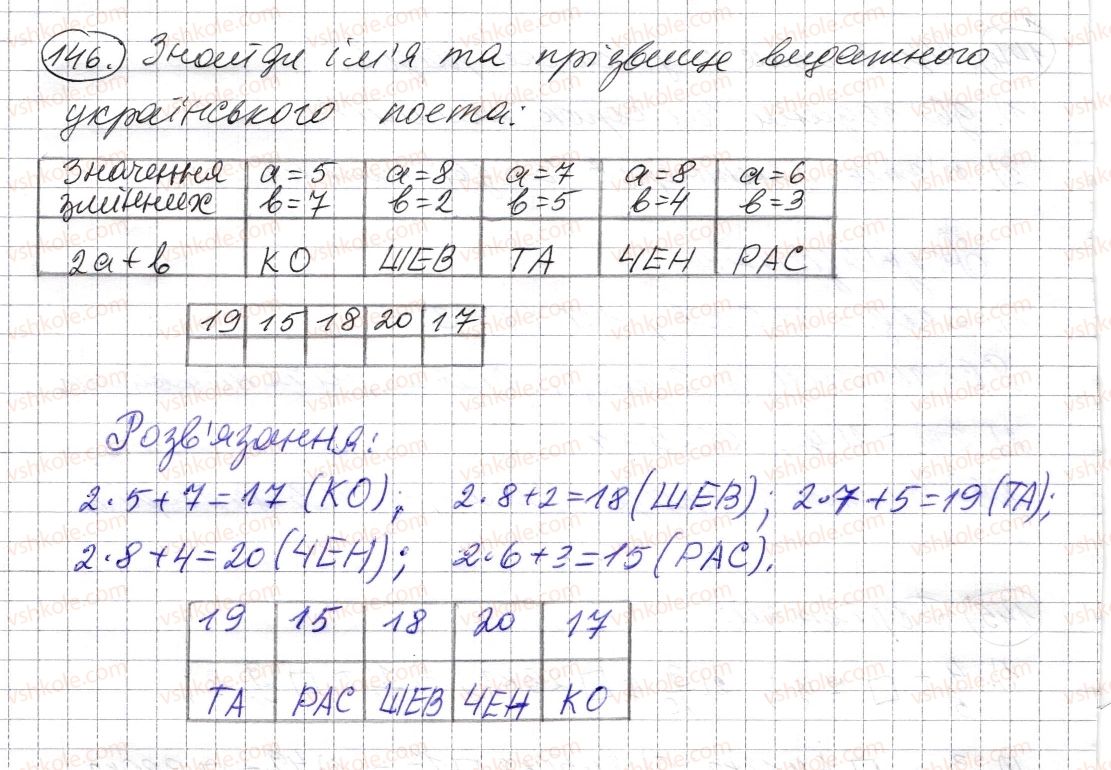 146. Знайди ім'я та прізвище видатного
українського поета:
Значення змінних a=5 b=7 a=8 b=2 a=7 b=5 a=8 b=4 a=6 b=3
2a+b КО ШЕВ ТА ЧЕН РАС
19 15 18 20 17
Розв'язання:
2·5+7=17 (КО); 2·8+2=18(ШЕВ); 2·7+5=19(ТА);
2·8+4=20(ЧЕН); 2·6+3=15(РАС).
19 15 18 20 17
ТА РАС ШЕВ ЧЕН КО
vshkole.com